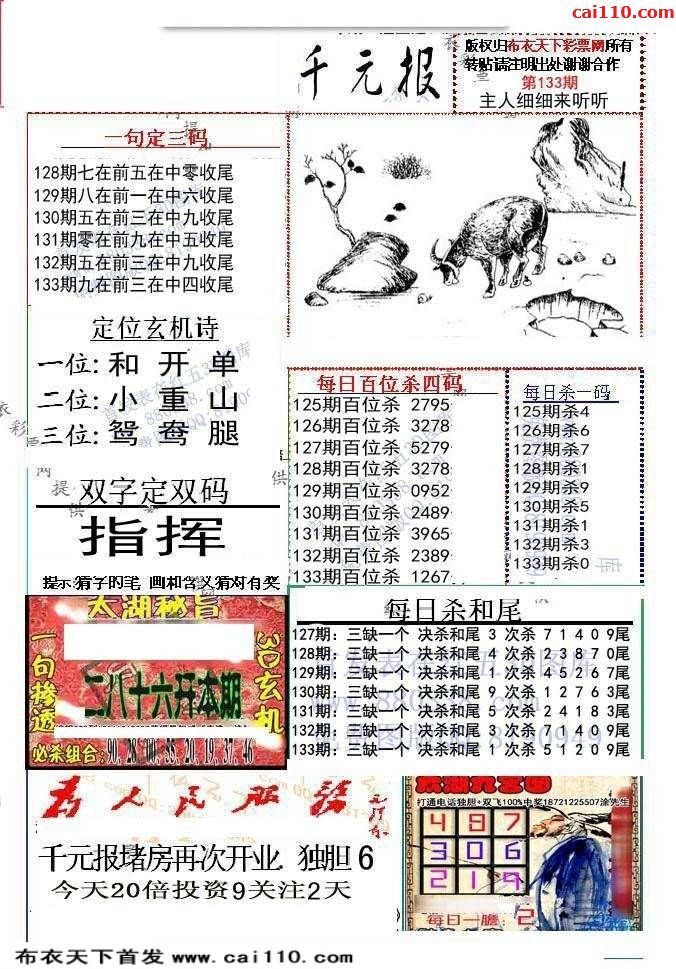 cai110.com
千元报
版权归布衣天下彩票网所有
转贴请注明出处谢谢合作
第133期
主人细细来听听
一句定三码
128期七在前五在中零收尾
129期八在前一在中六收尾
130期五在前三在中九收尾
131期零在前九在中五收尾
132期五在前三在中九收尾
133期九在前三在中四收尾
定位玄机诗
一位:和开单
二位:小重山
三位:鸳鸯腿
双字定双码
指挥
提示:猜字的笔画和含义猜对有奖
每日百位杀四码
125期百位杀 2795
126期百位杀 3278
127期百位杀 5279
128期百位杀 3278
129期百位杀 0952
130期百位杀 2489
131期百位杀 3965
132期百位杀 2389
133期百位杀 1267
每日杀一码
125期杀4
126期杀6
127期杀7
128期杀1
129期杀9
130期杀5
131期杀1
132期杀3
133期杀0
每日杀和尾
127期: 三缺一个 决杀和尾 3 次杀 7 1 4 0 9尾
128期: 三缺一个 决杀和尾 4 次杀 2 3 8 7 0尾
129期: 三缺一个 决杀和尾 1 次杀 4 5 2 6 7尾
130期: 三缺一个 决杀和尾 9 次杀 1 2 7 6 3尾
131期: 三缺一个 决杀和尾 5 次杀 2 4 1 8 3尾
132期: 三缺一个 决杀和尾 3 次杀 7 1 4 0 9尾
133期: 三缺一个 决杀和尾 1 次杀 5 1 2 0 9尾
太湖秘旨
一句掺透
3D玄机
二八十六开本期
必杀组合:90,28,00,55,20,19,37,46
为人民服务
千元报堵房再次开业 独胆 6
今天20倍投资9关注2天
打通电话独胆+双飞100%中奖18721225507涂先生
4 9 7
3 0 6
2 1 9
每日一胆: 2
布衣天下首发 www.cai110.com